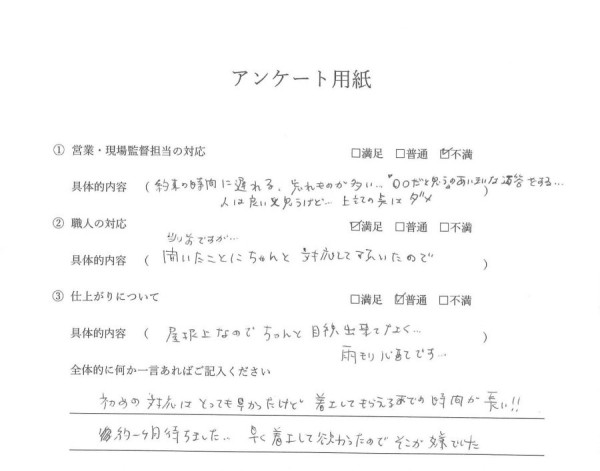 アンケート用紙
① 営業・現場監督担当の対応 □満足 □普通 ☑不満
具体的内容 (約束の時間に遅れる、忘れものが多い…"〇〇だと思うのあいまいな返答をする…)
人は良いと思うけど… 上での点はダメ
② 職人の対応 ☑満足 □普通 □不満
当り前ですが…
具体的内容 (聞いたことにちゃんと対応して頂いたので)
③ 仕上がりについて □満足 ☑普通 □不満
具体的内容 (屋根上なのでちゃんと目視出来てなく…)
雨もり心配です…
全体的に何か一言あればご記入ください
初めの対応はとっても早かったけど 着工してもらえるまでの時間が長い!!
約一ヶ月待ちました… 早く着工して欲かったのでそこが嫌でした